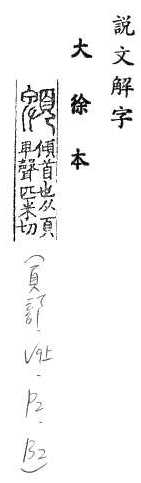 說文解字
大徐本
䫌
傾首也从頁
卑聲匹米切
(頁部.V9上.P2.B2)